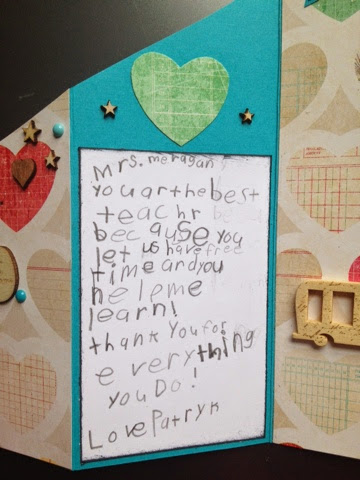 Mrs. meragan
you ar the best
teachr
because you
let us have free
time and you
help me
learn!
thank you for
everything
you Do!
Love Patryk